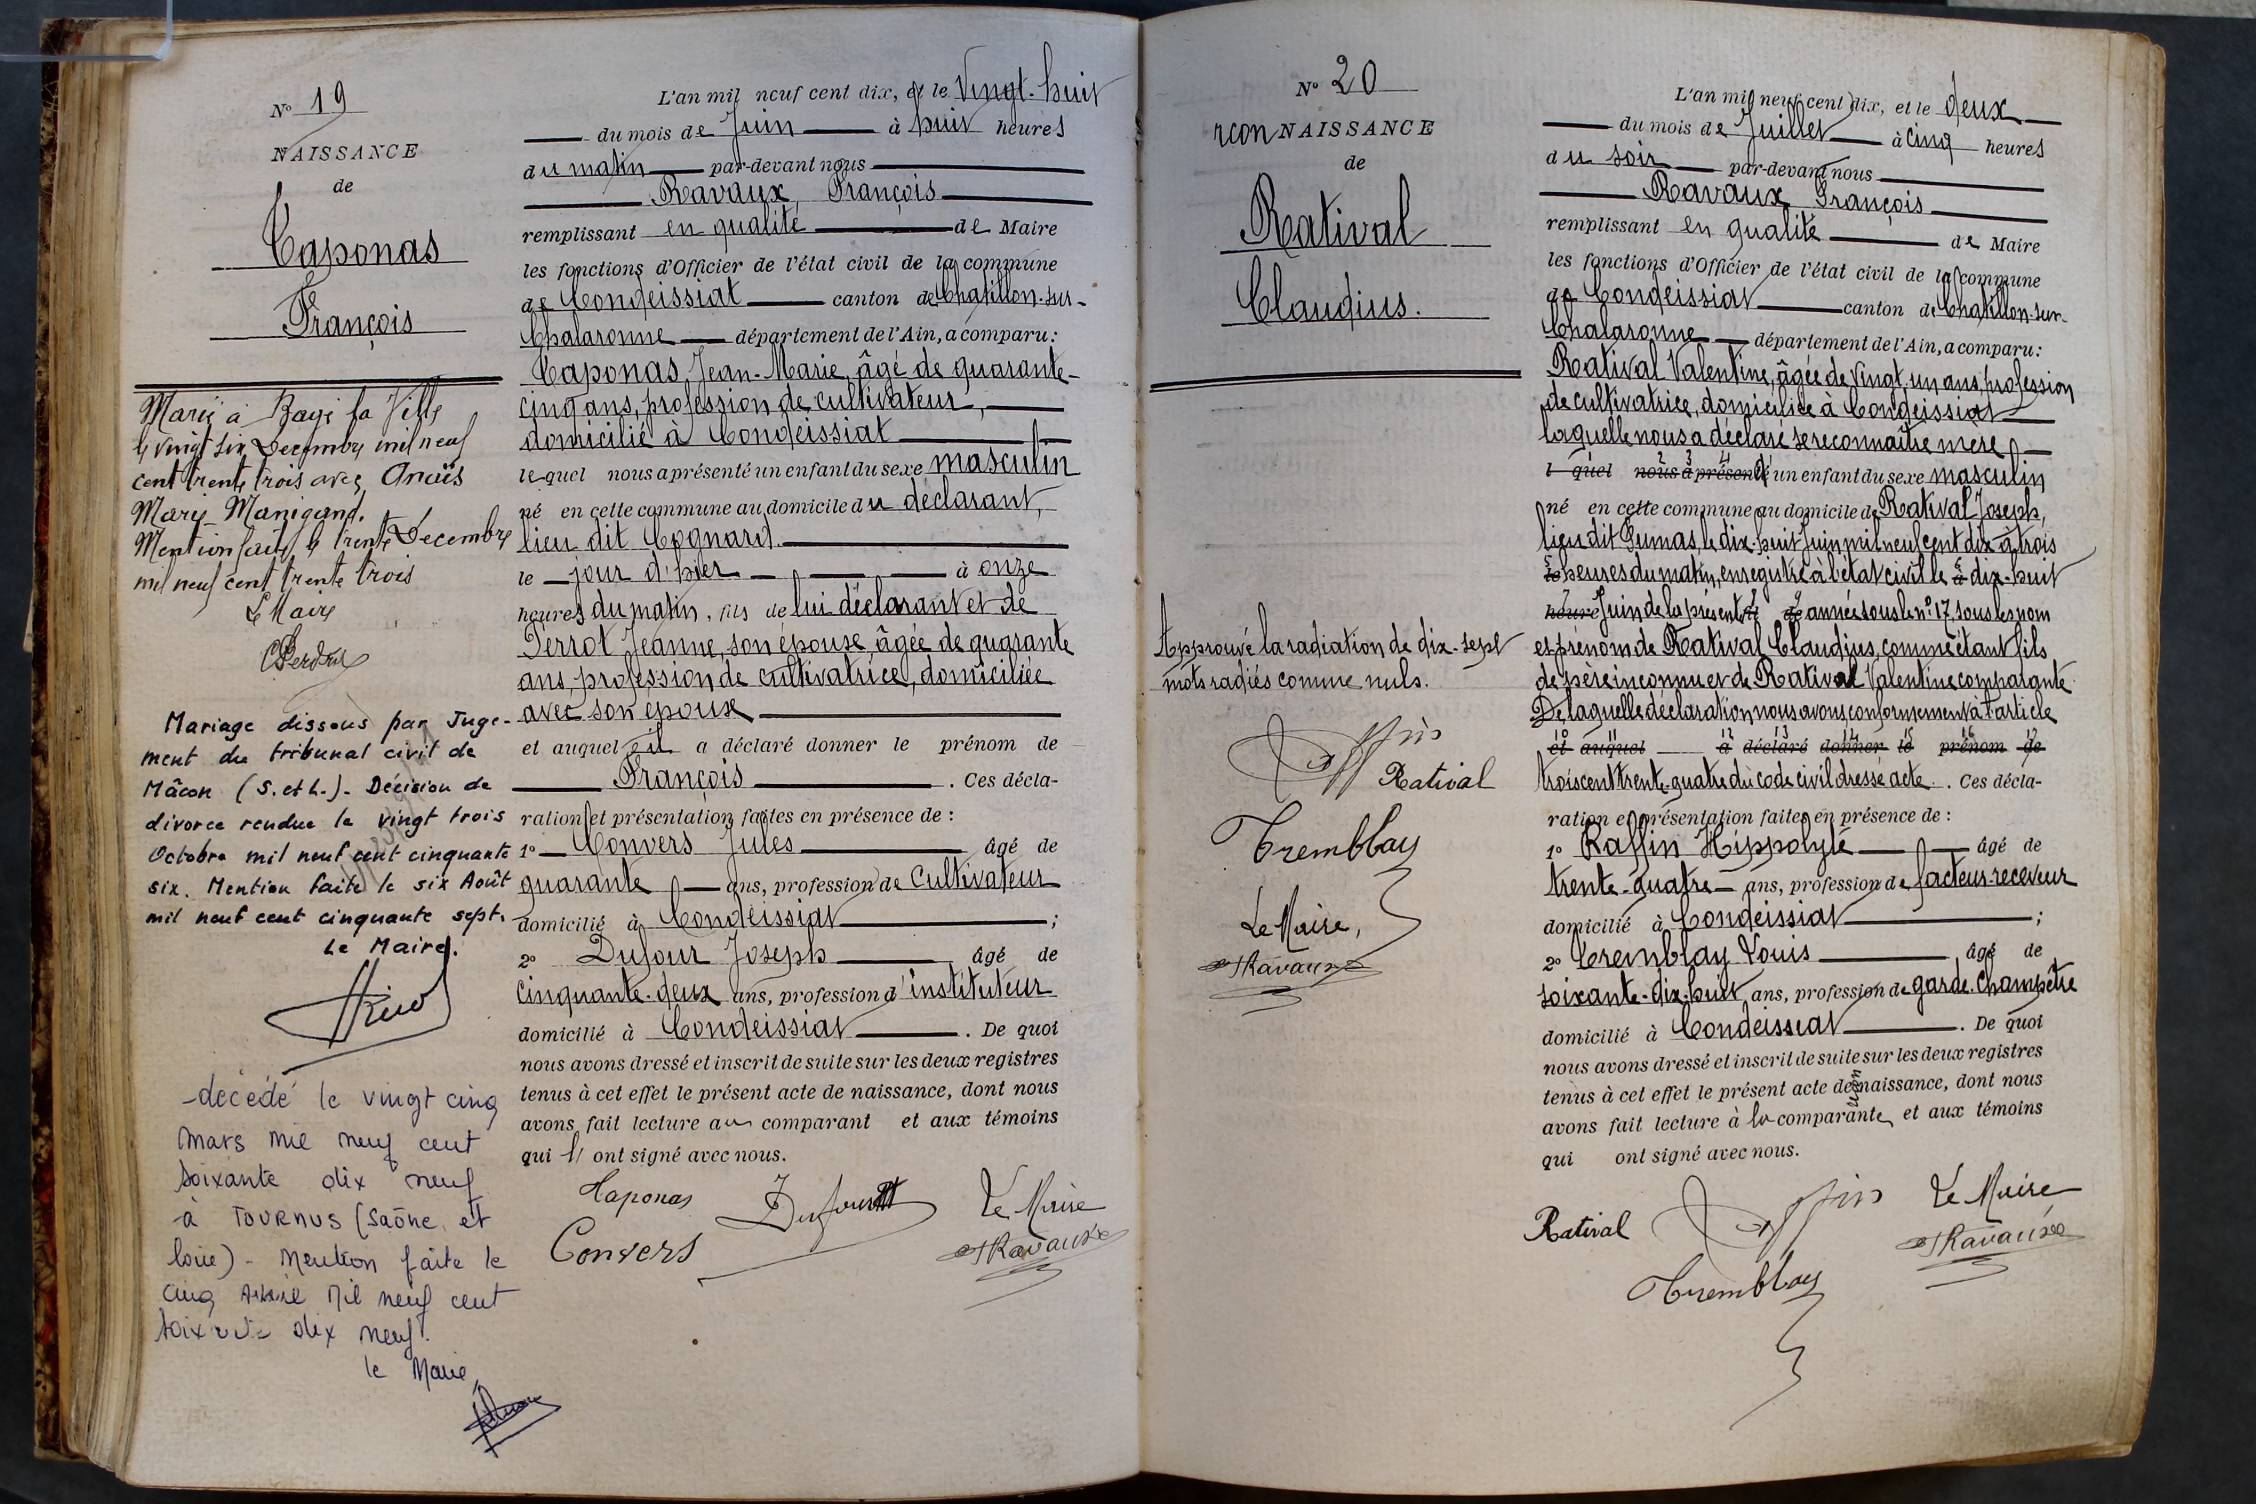 N° 19
NAISSANCE
de
Caponas
François
Marié à Bagé la Ville
le vingt six Decembre mil neuf
cent trente trois avec Anaïs
Marie Manigand.
Mention faite le trente Decembre
mil neuf cent trente trois
Le Maire
Mariage dissous par Juge-
ment du tribunal civil de
Mâcon (S. et L.). Décision de
divorce rendue le vingt trois
Octobre mil neuf cent cinquante
six. Mention faite le six Août
mil neuf cent cinquante sept.
Le Maire.
décédé le vingt cinq
mars mil neuf cent
soixante dix neuf
à TOURNUS (Saône et
loire) - Mention faite le
cinq Avril mil neuf cent
soixante dix neuf.
le Maire
L'an mil neuf cent dix, et le Vingt-huit
du mois de Juin à huit heures
du matin par-devant nous
Ravaux, François
remplissant en qualité de Maire
les fonctions d'Officier de l'état civil de la commune
de Condeissiat canton de Chatillon-sur-
Chalaronne département de l'Ain, a comparu:
Caponas Jean-Marie, âgé de quarante-
cinq ans, profession de cultivateur,
domicilié à Condeissiat
lequel nous a présenté un enfant du sexe masculin
né en cette commune au domicile du déclarant,
lieu dit Cognard.
le jour d'hier à onze
heures du matin, fils de lui déclarant et de
Perrot Jeanne, son épouse, âgée de quarante
ans, profession de cultivatrice, domiciliée
avec son époux
et auquel il a déclaré donner le prénom de
François. Ces décla-
ration et présentation faites en présence de :
1° Convers Jules âgé de
quarante ans, profession de Cultivateur
domicilié à Condeissiat ;
2° Dufour Joseph âgé de
cinquante-deux ans, profession d'instituteur
domicilié à Condeissiat. De quoi
nous avons dressé et inscrit de suite sur les deux registres
tenus à cet effet le présent acte de naissance, dont nous
avons fait lecture au comparant et aux témoins
qui ont signé avec nous.
Caponas Dufour Le Maire
Convers Ravaux
N° 20
rcon NAISSANCE
de
Ratival
Claudius.
Approuvé la radiation de dix-sept
mots radiés comme nuls.
Raffin
Ratival
Tremblay
Le Maire,
Ravaux
L'an mil neuf cent dix, et le deux
du mois de Juillet à cinq heures
du soir par-devant nous
Ravaux François
remplissant en qualité de Maire
les fonctions d'Officier de l'état civil de la commune
de Condeissiat canton de Chatillon-sur-
Chalaronne département de l'Ain, a comparu:
Ratival Valentine, âgée de vingt, un ans, profession
de cultivatrice, domiciliée à Condeissiat
laquelle nous a déclaré se reconnaître mère
l quel nous a présenté un enfant du sexe masculin
né en cette commune au domicile de Ratival Joseph,
lieu dit Gumas, le dix-huit Juin mil neuf cent dix à trois
le heures du matin, enregistré à l'état civil le à dix-huit
heure Juin de la présente de année sous le n° 17, sous les nom
et prénom de Ratival Claudius, comme étant fils
de père inconnu et de Ratival Valentine comparante.
De laquelle déclaration nous avons conformément à l'article
et auquel a déclaré donner le prénom de
trois cent trente-quatre du code civil dressé acte. Ces décla-
ration et présentation faites en présence de :
1° Raffin Hippolyte âgé de
trente-quatre ans, profession de facteur-receveur
domicilié à Condeissiat ;
2° Tremblay Louis âgé de
soixante-dix-huit ans, profession de garde-champêtre
domicilié à Condeissiat. De quoi
nous avons dressé et inscrit de suite sur les deux registres
tenus à cet effet le présent acte de rcon naissance, dont nous
avons fait lecture à la comparante, et aux témoins
qui ont signé avec nous.
Ratival Raffin Le Maire
Tremblay Ravaux